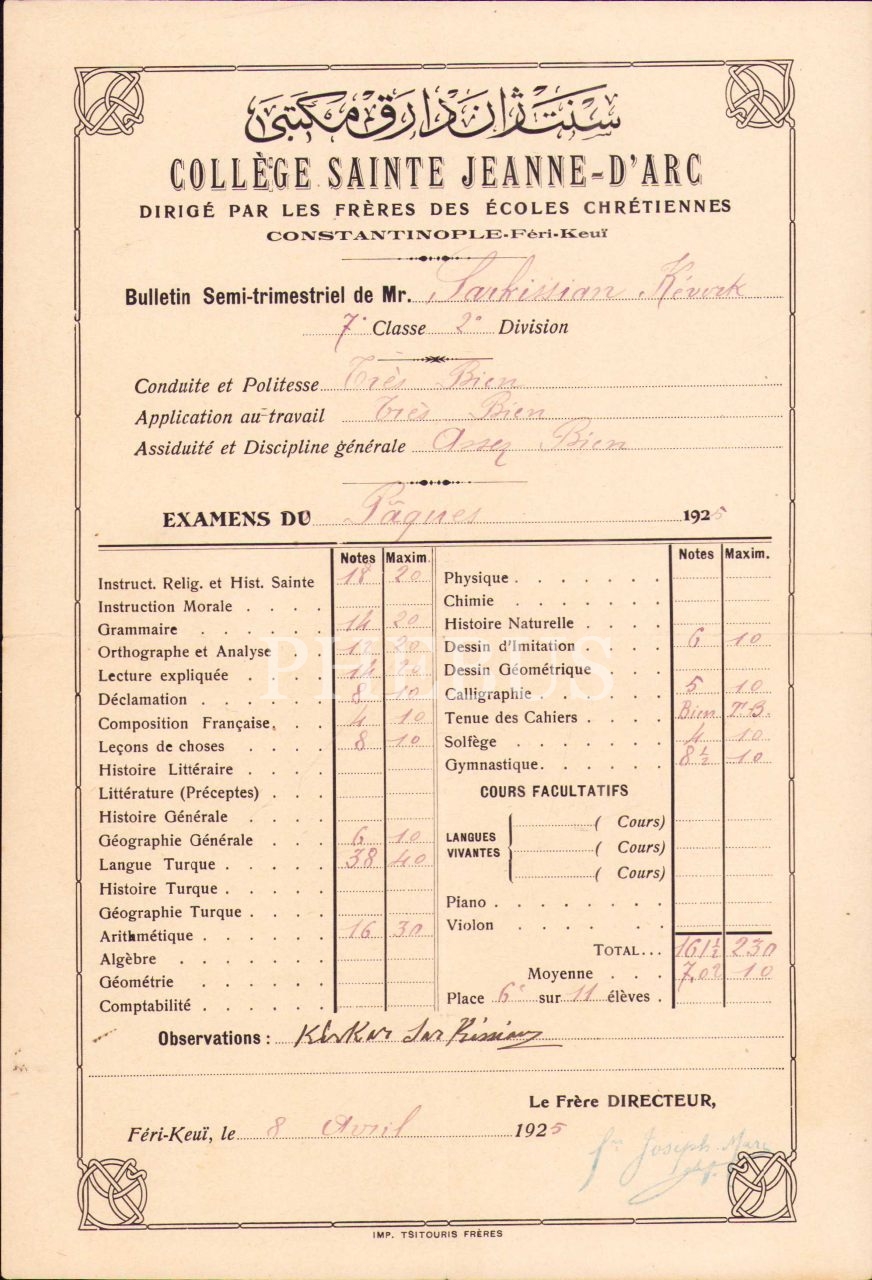 سنت ژان دارق مكتبى
COLLÈGE SAINTE JEANNE-D'ARC
DIRIGÉ PAR LES FRÈRES DES ÉCOLES CHRÉTIENNES
CONSTANTINOPLE-Féri-Keuï
Bulletin Semi-trimestriel de Mr. Sarkissian Kévork
7e Classe 2e Division
Conduite et Politesse Très Bien
Application au travail Très Bien
Assiduité et Discipline générale Assez Bien
EXAMENS DU Pâques 1925
Notes Maxim.
Instruct. Relig. et Hist. Sainte 18 20
Instruction Morale
Grammaire 14 20
Orthographe et Analyse 12 20
Lecture expliquée 14 20
Déclamation 8 10
Composition Française 4 10
Leçons de choses 8 10
Histoire Littéraire
Littérature (Préceptes)
Histoire Générale
Géographie Générale 6 10
Langue Turque 38 40
Histoire Turque
Géographie Turque
Arithmétique 16 30
Algèbre
Géométrie
Comptabilité
Notes Maxim.
Physique
Chimie
Histoire Naturelle
Dessin d'Imitation 6 10
Dessin Géométrique
Calligraphie 5 10
Tenue des Cahiers Bien T-B.
Solfège 4 10
Gymnastique 8 1/2 10
COURS FACULTATIFS
LANGUES VIVANTES
( Cours)
( Cours)
( Cours)
Piano
Violon
TOTAL... 161 1/2 230
Moyenne 7,02 10
Place 6e sur 11 élèves
Observations :
Le Frère DIRECTEUR,
Féri-Keuï, le 8 Avril 1925
fr Joseph-Marc
IMP. TSITOURIS FRÈRES
PHEBUS